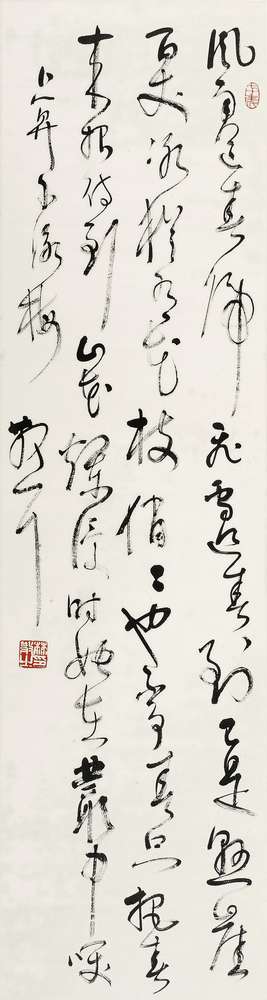 風雨送春歸飛雪迎春到已是懸崖
百丈冰猶有花枝俏々也不爭春只把春
來報待到山花爛漫時她在叢中笑
卜算子詠梅